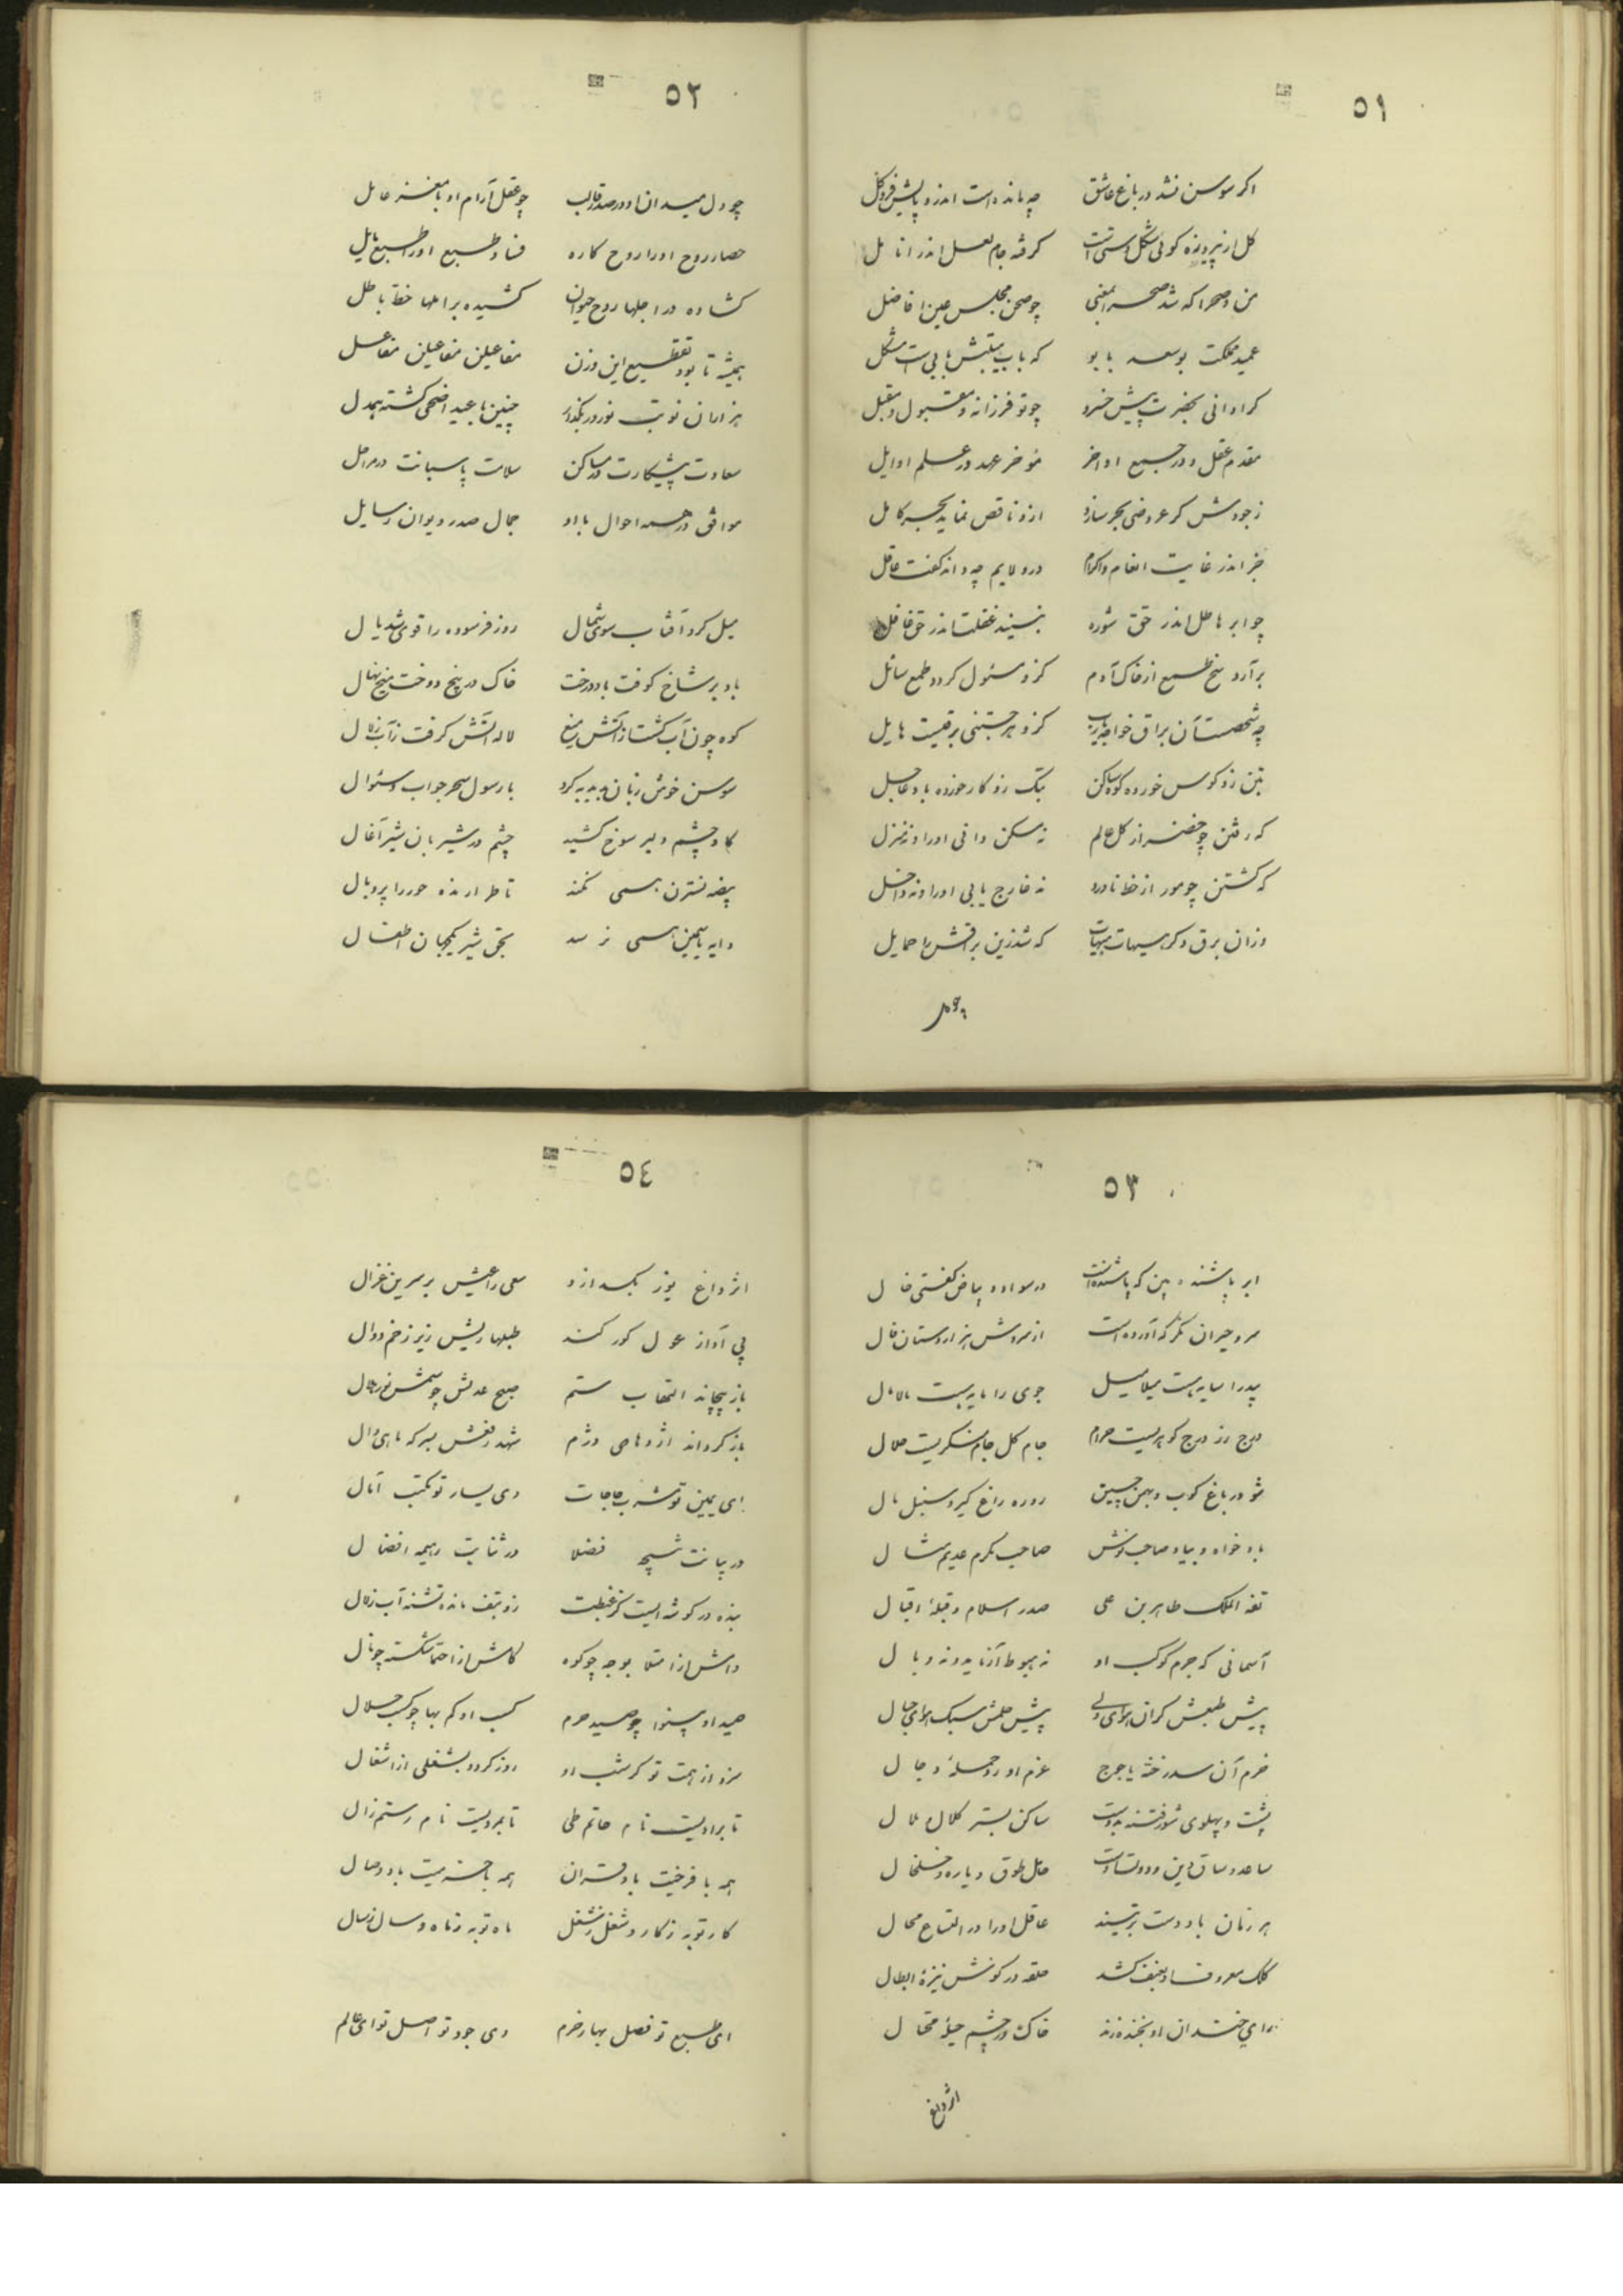 ٥١
اگر سوسن نشد در باغ عاشق چه مانده است اندرو پایش فرو گل
گل از پیروزه گوئی شکل دستی است گرفته جام لعل اندر انامل
من و صحرا که شد صحرا بمعنی چو صحن مجلس عین افاضل
عمید مملکت بوسعد بابو که باب هیبتش بابی است مشکل
کرا دانی بحضرت پیش خسرو چو تو فرزانه و مقبول و مقبل
مقدم عقل و در جمیع اواخر مؤخر عهد در علم اوایل
ز جودش گر عروضی بحر سازد ازو ناقص نماید بحر کامل
خبر اندر غایت انعام و اکرام درو لایم چه داند گفت عاقل
چو ابر هاطل اندر حق شوره نبیند غفلت اندر حق غافل
برآرد بیخ طمع از خاک آدم کزو مسئول گردد طمع سائل
چه شخصست آن براق خواجه یارب کزو هر جستنی برقیست هایل
بتن زو کوس خورده کوه ساکن بتک زو کار خورده باد عاجل
که رفتن چو خضر از کل عالم نه مسکن دانی او را و نه منزل
که گشتن چو مور از خط ناورد نه خارج یابی او را و نه داخل
وزان برق دگر هیهات هیهات که شد زین براقش را حمایل
چو دل
٥٢
چو دل میدان او در صدر قالب چو عقل آرام او با مغز عامل
حصار روح او را روح کاره فناء طبع او را طبع مایل
گشاده در اجلها روح حیوان کشیده بر املها خط باطل
همیشه تا بود تقطیع این وزن مفاعیلن مفاعیلن مفاعل
هزاران نوبت نوروز بگذار چنین با عید اضحی گشته همدل
سعادت پیشکارت در مساکن سلامت پاسبانت در مراحل
موافق در همه احوال با او جمال صدر دیوان رسایل
میل کرد آفتاب سوی شمال روز فرسوده را قوی شد یال
باد بر شاخ کوفت بار درخت خاک در بیخ دوخت بیخ نهال
کوه چون آب گشت از آتش میغ لاله آتش گرفت ز آب زلال
سوسن خوش زبان بدیهه گرد با رسول سحر جواب و سئوال
گاو چشم دلیر سوخ کشید چشم در شیربان شیر آغال
بیضه نسترن همی نکند تا طرازنده حور را پر و بال
دایه یاسمین همی نرسد بحق شیر یکجهان اطفال
٥٣
ابر باشنده بین که باشنده است در سواد و بیاض گفتی خال
سرو حیران نگر که آورده است از سروش هزار دستان فال
بید را سایه ایست میلامیل جوی را مایه ایست مالامال
درج رز درج گوهریست حرام جام گل جام شکریست حلال
شو در باغ کوب و بهمن چین رو ره راغ گیر و سنبل مال
باده خواه و بیاد صاحب نوش صاحب مکرم عدیم مثال
ثقة الملک طاهر بن علی صدر اسلام و قبلهٔ اقبال
آسمانی که جرم کوکب او نه هبوط آزماید و نه وبال
پیش طبعش گران هوای ولی پیش حلمش سبک هوای جبال
حزم آن سد رخنه یاجوج عزم او رد حملهٔ دجال
پشت و پهلوی شور فتنه بدوست ساکن بستر کلال و ملال
ساعد و ساق دین و دولت راست حال طوق و یاره و خلخال
هر زمان با دوست بر تیسند عاقل او را در اتساع محال
کلک معروف او بعنف کشد حلقه در گوش نیزهٔ ابطال
رای خندان او بخنده زند خاک در چشم حیلهٔ محتال
اثر داغ
٥٤
اثر داغ یوز بگدازد سعی راعیش بر سرین غزال
پی آواز عول کور کند طبلها ریش زیر زخم دوال
باز پیچاند التهاب ستم صبح عدلش چو شمس نور ظلال
باز گرداند اژدهای دژم شهد رفقش بسرکه مای وال
ای یمین تو مشرب حاجات وی یسار تو مکتب آمال
در بیانت نتیجه فضلا در ثنایت ریمه افضال
بنده در گوشه ایست کز غبطت زو بتف مانده تشنه آب زلال
دانش از امتلا بوجه چو کوه کامش از احتما شکسته چو نال
صید او بینوا چو صید حرم کسب او کم بها چو کسب حلال
سزد از همت تو گر شب او روز گردد بشغلی از اشغال
تا برادیست نام حاتم طی تا بمردیست نام رستم زال
همه با فرخیت باد قران همه با خرمیت باد وصال
کار تو به ز کار و شغل ز شغل ماه تو به ز ماه و سال ز سال
ای طبع تو فصل بهار خرم وی جود تو اصل نوای عالم